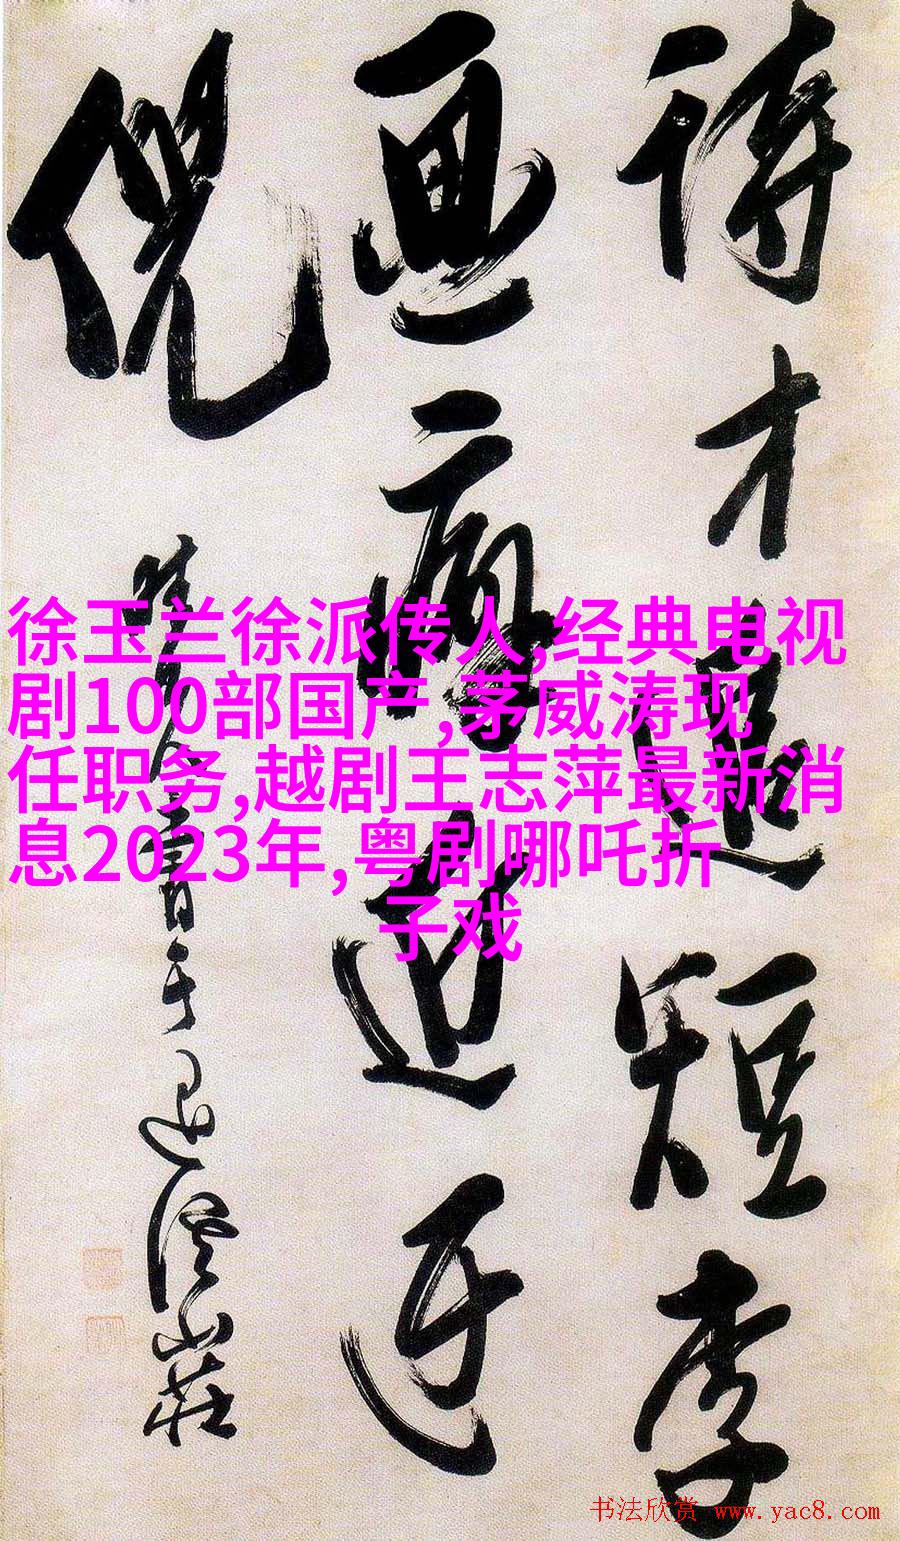 诗才追短李
画癖近迂
倪
徐玉兰徐派传人,经典电视
剧100部国产,茅威涛现
任职务,越剧王志萍最新消
息2023年,粤剧哪吒折
子戏
书法欣赏 www.yac8.com